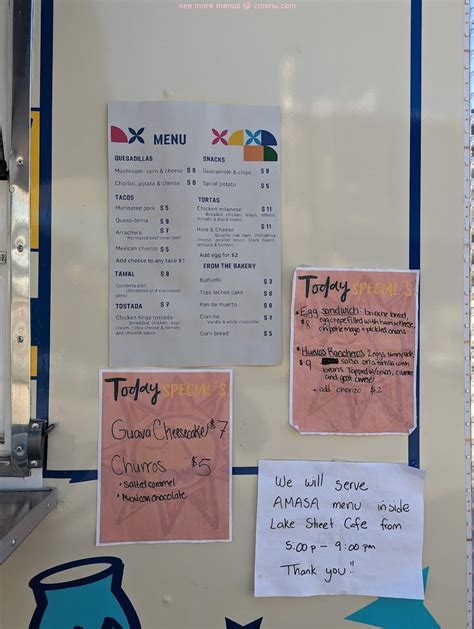 see more menus @ zmenu.com
MENU
QUESADILLAS
Mushroom- corn & cheese $ 6
Chorizo, potato & cheese $ 6
TACOS
Marinated pork $ 5
Quesa-birria $ 9
Arrachera $ 7
Marinated beef
Mexican chorizo $ 5
Add cheese to any taco $1
TAMAL $ 8
Cochinita pibil
(Shredded and marinated pork)
TOSTADA $ 7
Chicken tinga tostada
(Shredded chicken, sour cream, cotija cheese & tomato and chipotle salsa)
SNACKS
Guacamole & chips $ 8
Spiral potato $ 5
TORTAS
Chicken milanese $ 11
Breaded chicken, mayo, lettuce, tomato & black beans
Ham & Cheese $ 11
Add egg for $2
FROM THE BAKERY
Buñuelo $ 3
Tres leches cake $ 8
Pan de muerto $ 8
Concha $ 7
Vanilla & white chocolate
Corn bread $ 8
Today SPECIAL'S
• Egg sandwich: brioche bread,
$ 8 egg crepe filled with ham & cheese,
chipotle mayo + pickled onions
• Huevos Rancheros 2 eggs, sunny side
$ 9 salsa on a tortilla with
beans. Topped w/onion, cilantro
and goat cheese!
- add chorizo $2
Today SPECIAL'S
Guava Cheesecake $7
Churros $5
• Salted caramel
• Mexican chocolate
We will serve
AMASA menu inside
Lake Street Cafe from
5:00 p - 9:00 pm
Thank you!!